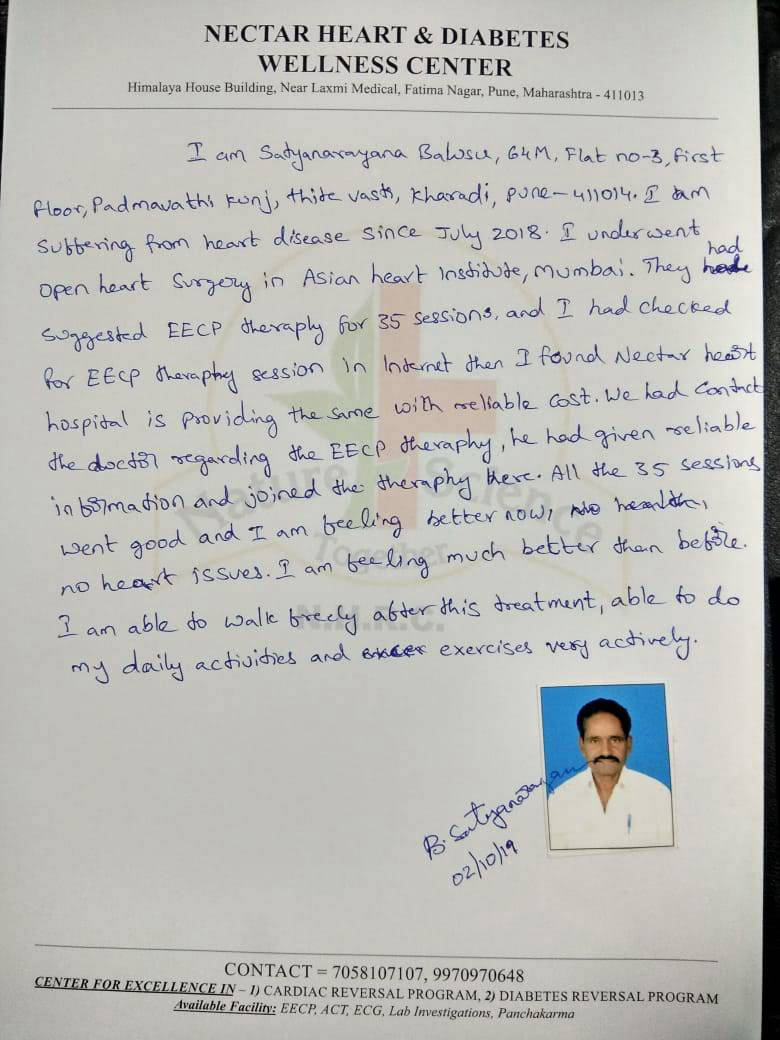 NECTAR HEART & DIABETES
WELLNESS CENTER
Himalaya House Building, Near Laxmi Medical, Fatima Nagar, Pune, Maharashtra - 411013
I am Satyanarayana Balusu, 64M, Flat no-3, first
floor, Padmavathi Kunj, thite vasti, Kharadi, pune-411014. I am
suffering from heart disease since July 2018. I underwent
open heart Surgery in Asian heart Institute, Mumbai. They had
suggested EECP theraphy for 35 sessions, and I had checked
for EECP theraphy session in Internet then I found Nectar heart
hospital is providing the same with reliable cost. We had contact
the doctor regarding the EECP theraphy, he had given reliable
information and joined the theraphy here. All the 35 sessions
went good and I am feeling better now,
no heart issues. I am feeling much better than before.
I am able to walk freely after this treatment, able to do
my daily activities and exercises very actively.
B. Satyanarayan
02/10/19
Nature Science
Together
N.M.R.C.
CONTACT = 7058107107, 9970970648
CENTER FOR EXCELLENCE IN – 1) CARDIAC REVERSAL PROGRAM, 2) DIABETES REVERSAL PROGRAM
Available Facility: EECP, ACT, ECG, Lab Investigations, Panchakarma